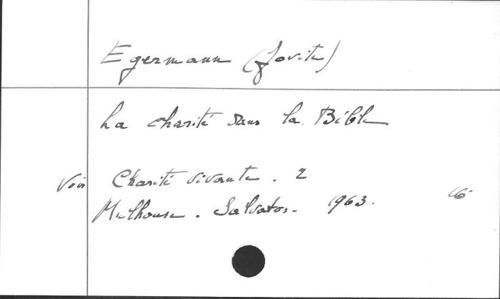 Egermann (Jovita)
La charité dans la Bible
Voir Charité vivante. 2
Mulhouse. Salvator. 1963.